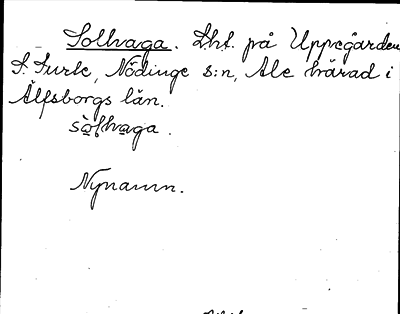 Solhaga. Lht. på Uppegården
S. Surte, Nödinge s:n, Ale härad i
Älfsborgs län.
sòlhaga.
Nynamn.